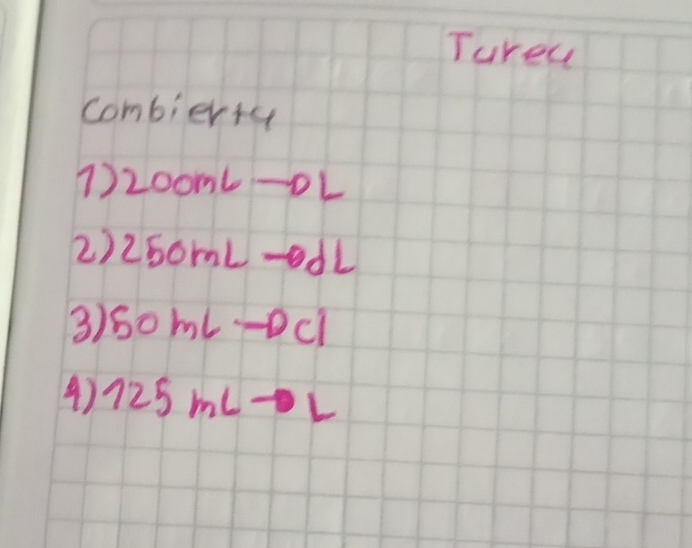 Tarea
Combierta
1) 200mL → L
2) 250mL → dL
3) 50 mL → cl
4) 125 mL → L